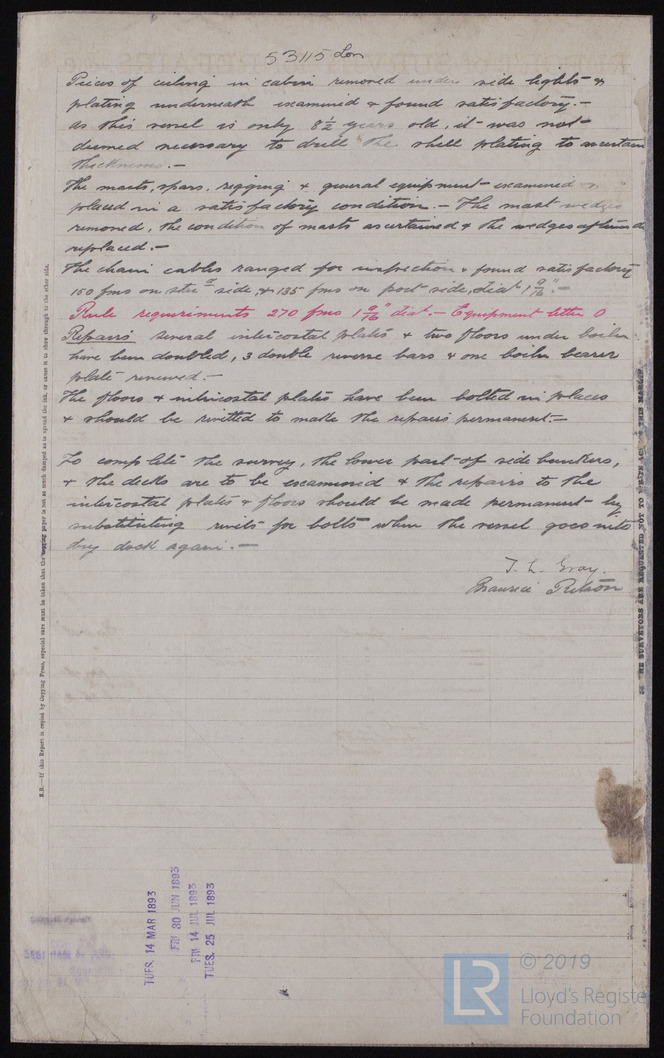 53115 Lon
Pieces of ceiling in cabin removed under side lights &
plating underneath examined & found satisfactory.—
As this vessel is only 8½ years old, it was not
deemed necessary to drill the shell plating to ascertain
thickness.—
The masts, spars, rigging & general equipment examined
placed in a satisfactory condition.— The mast wedges
removed, the condition of masts ascertained & the wedges afterwards
replaced.—
The chain cables ranged for inspection & found satisfactory
150 fms on stbd side, & 135 fms on port side, diar 1 9/16".—
Rule requirements 270 fms 1 9/16" diar.— Equipment letter O
Repairs Several intercostal plates & two floors under boiler
have been doubled, 3 double reverse bars & one boiler bearer
plate renewed.—
The floors & intercostal plates have been bolted in places
& should be rivetted to make the repairs permanent.—
To complete the survey, the lower part of side bunkers,
& the decks are to be examined & the repairs to the
intercostal plates & floors should be made permanent by
substituting rivets for bolts when the vessel goes into
dry dock again.—
T. L. Gray.
Maurice
N.B.—If this Report is copied by Copying Press, especial care must be taken that the copying paper is not so much damped as to spread the ink, or cause it to show through to the other side.
THE SURVEYORS ARE REQUESTED NOT TO WRITE
TUES. 14 MAR 1893
FRI 30 JUN 1893
FRI 14 JUL 1893
TUES. 25 JUL 1893
LR
© 2019
Lloyd's Register
Foundation